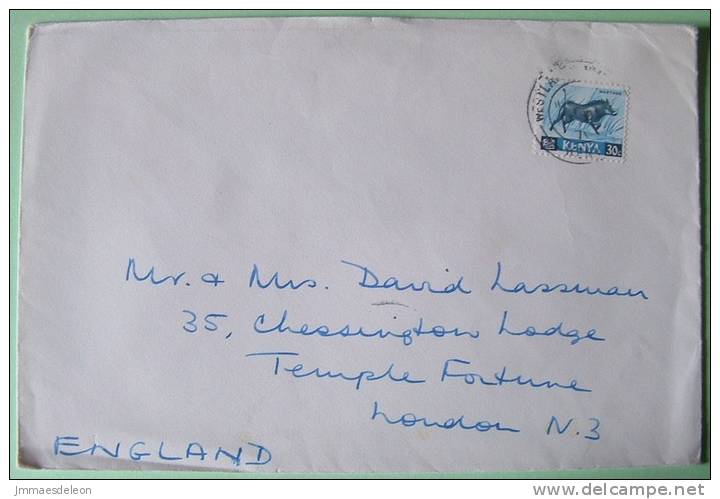 WARTHOG
KENYA 30c
Mr. & Mrs. David Lassman
35, Chessington Lodge
Temple Fortune
London N.3
ENGLAND
jmmaesdeleon
www.delcampe.net